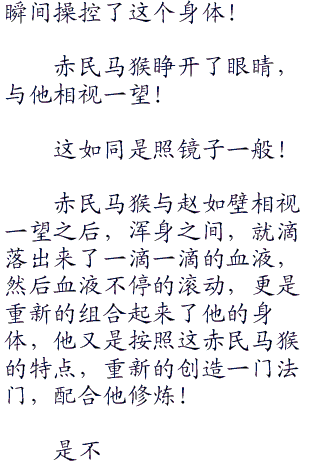 瞬间操控了这个身体！
赤民马猴睁开了眼睛，
与他相视一望！
这如同是照镜子一般！
赤民马猴与赵如壁相视
一望之后，浑身之间，就滴
落出来了一滴一滴的血液，
然后血液不停的滚动，更是
重新的组合起来了他的身
体，他又是按照这赤民马猴
的特点，重新的创造一门法
门，配合他修炼！
是不